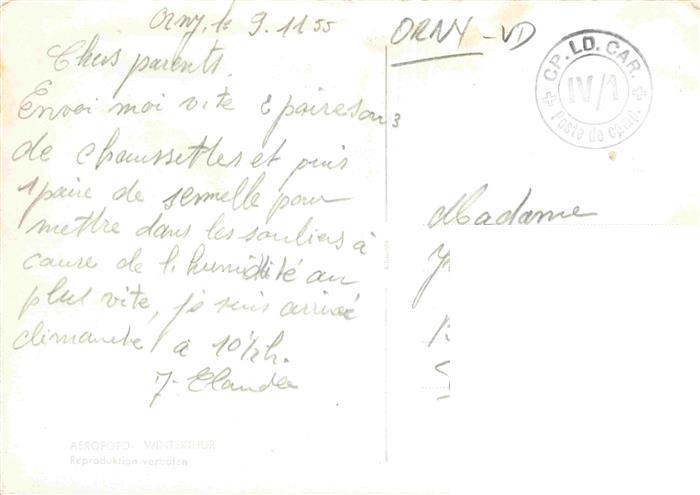 Orny, le 9.11.55
Chers parents.
Envoi moi vite 2 paires ou 3
de chaussettes et puis
1 paire de semelle pour
mettre dans les souliers à
cause de l'humidité au
plus vite, je suis arrivé
dimanche à 10½h.
J. Claude
AEROFOTO - WINTERTHUR
Reproduktion verboten
ORNY - VD
CP. LD. CAR.
IV/1
Poste de camp.
Madame